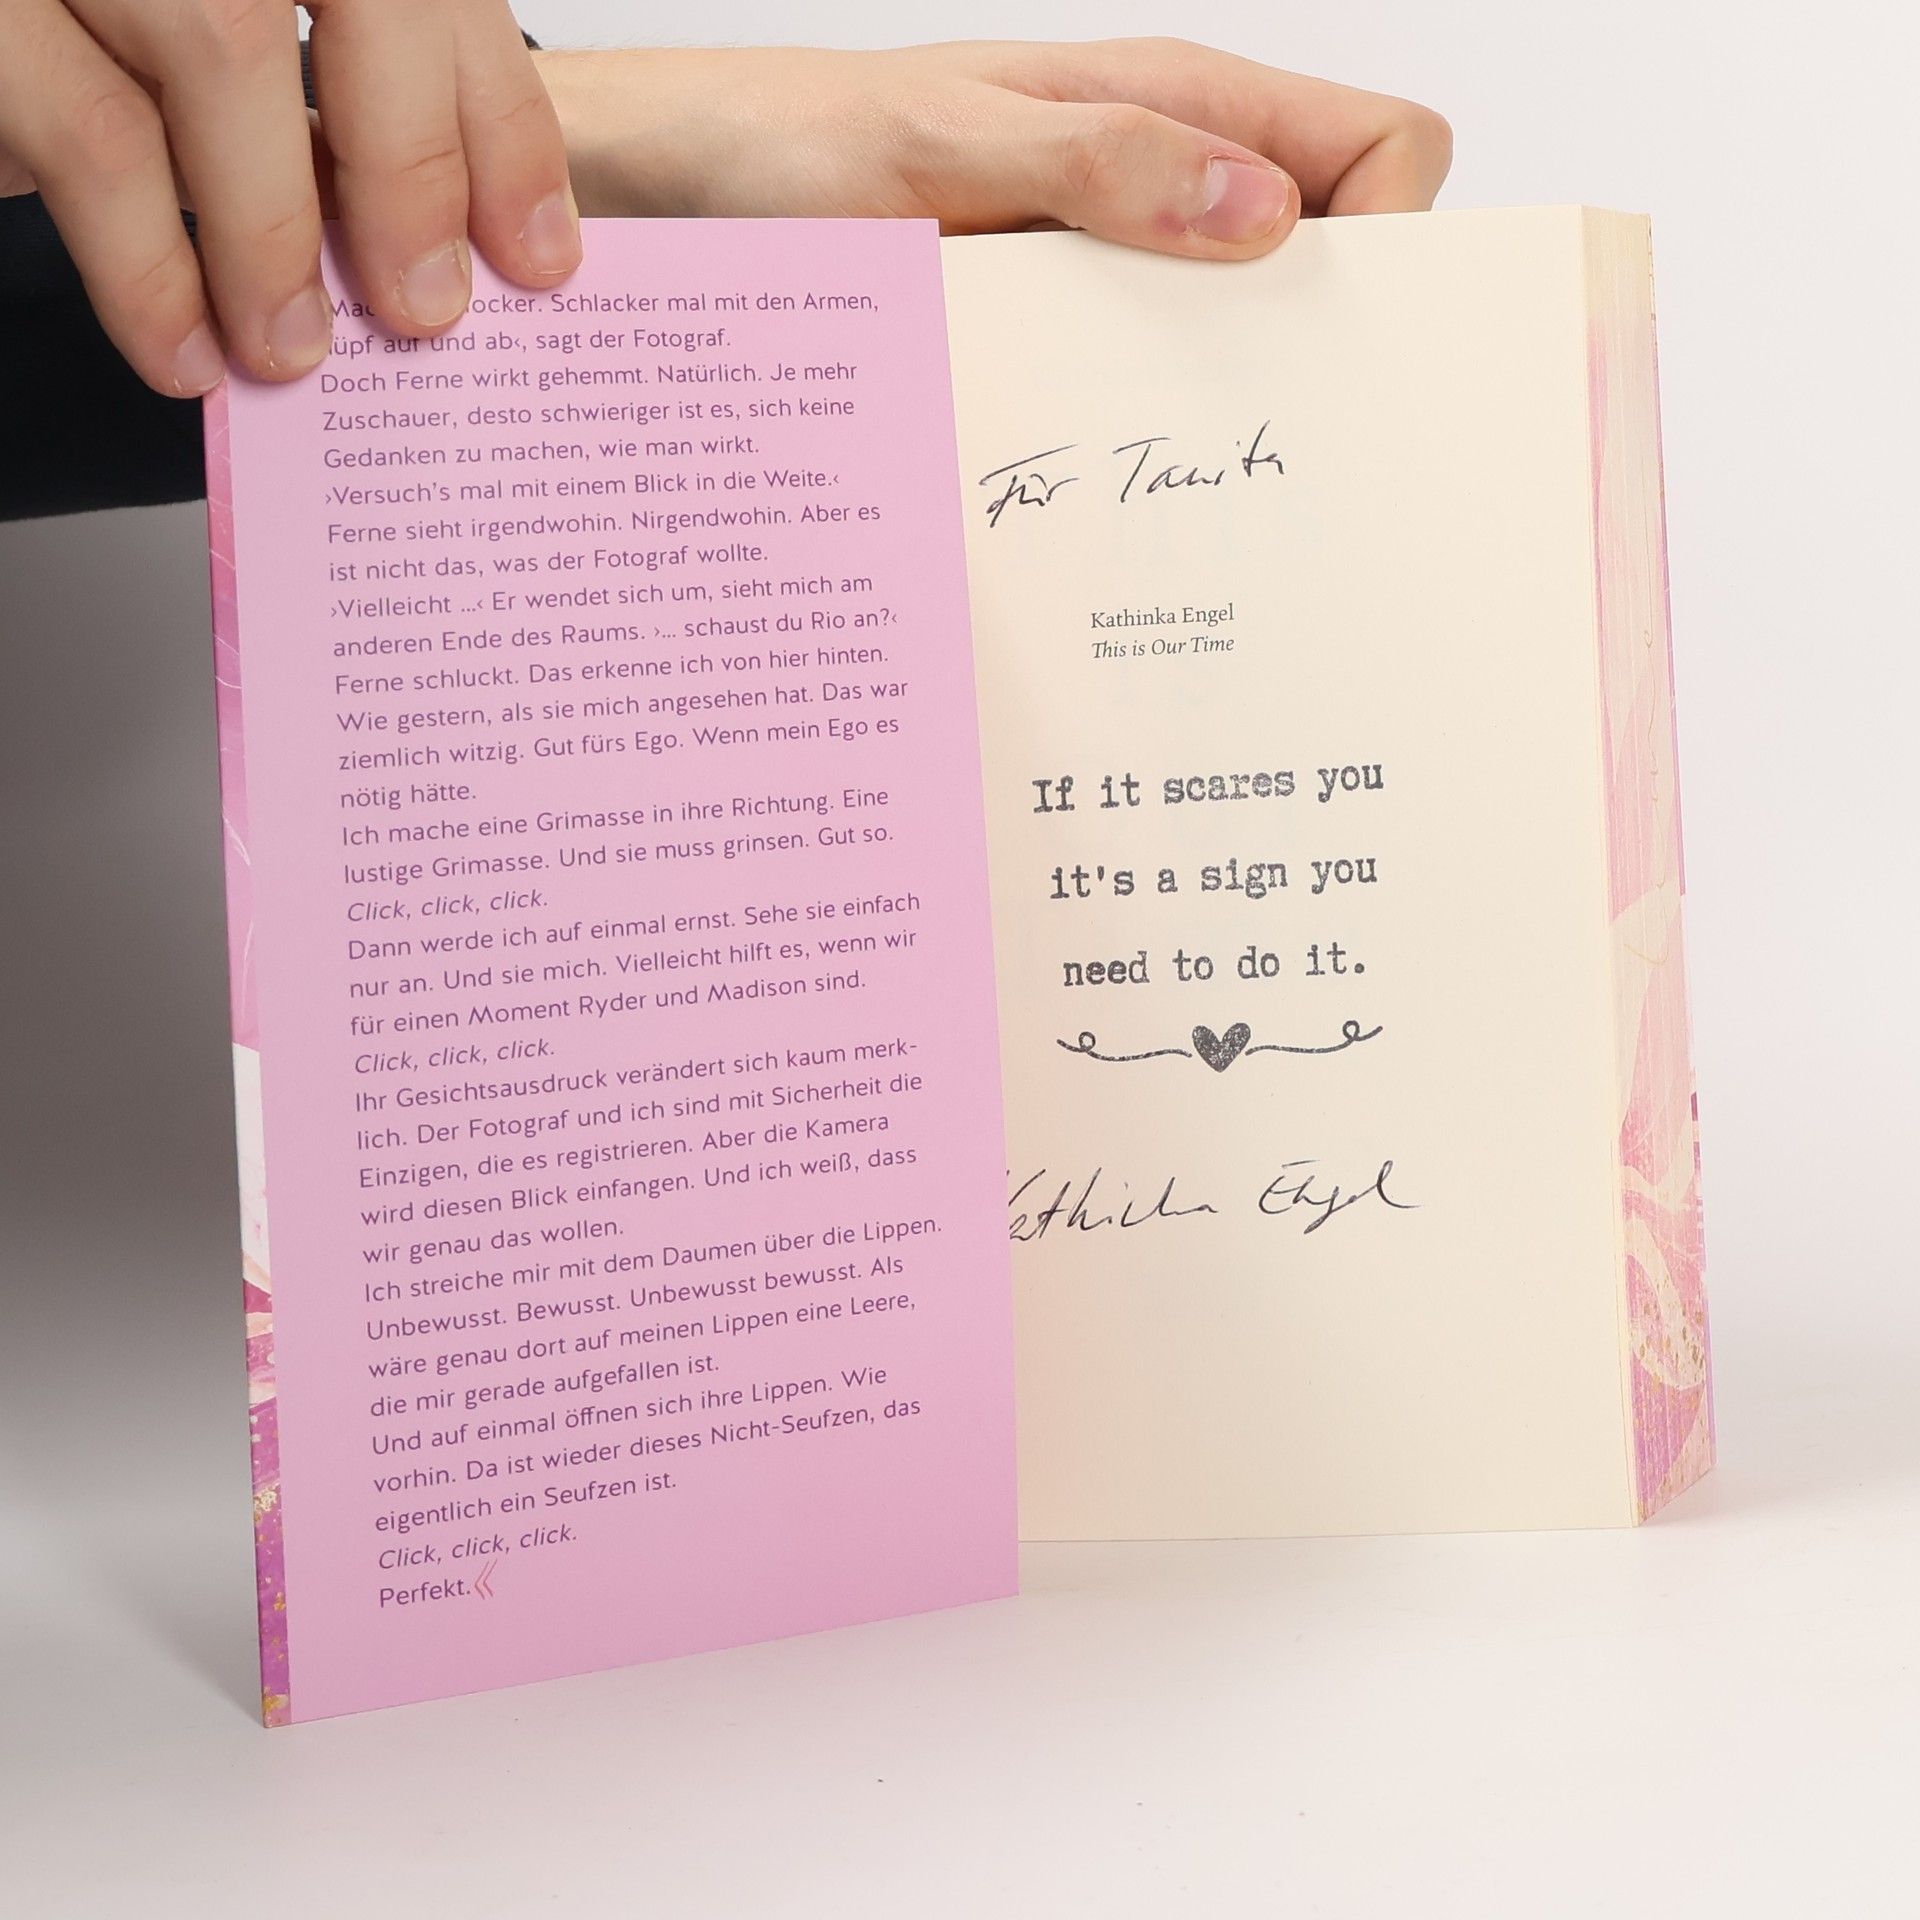 locker. Schlacker mal mit den Armen,
auf und ab‹, sagt der Fotograf.
Doch Ferne wirkt gehemmt. Natürlich. Je mehr
Zuschauer, desto schwieriger ist es, sich keine
Gedanken zu machen, wie man wirkt.
›Versuch’s mal mit einem Blick in die Weite.‹
Ferne sieht irgendwohin. Nirgendwohin. Aber es
ist nicht das, was der Fotograf wollte.
›Vielleicht ...‹ Er wendet sich um, sieht mich am
anderen Ende des Raums. ›... schaust du Rio an?‹
Ferne schluckt. Das erkenne ich von hier hinten.
Wie gestern, als sie mich angesehen hat. Das war
ziemlich witzig. Gut fürs Ego. Wenn mein Ego es
nötig hätte.
Ich mache eine Grimasse in ihre Richtung. Eine
lustige Grimasse. Und sie muss grinsen. Gut so.
Click, click, click.
Dann werde ich auf einmal ernst. Sehe sie einfach
nur an. Und sie mich. Vielleicht hilft es, wenn wir
für einen Moment Ryder und Madison sind.
Click, click, click.
Ihr Gesichtsausdruck verändert sich kaum merk-
lich. Der Fotograf und ich sind mit Sicherheit die
Einzigen, die es registrieren. Aber die Kamera
wird diesen Blick einfangen. Und ich weiß, dass
wir genau das wollen.
Ich streiche mir mit dem Daumen über die Lippen.
Unbewusst. Bewusst. Unbewusst bewusst. Als
wäre genau dort auf meinen Lippen eine Leere,
die mir gerade aufgefallen ist.
Und auf einmal öffnen sich ihre Lippen. Wie
vorhin. Da ist wieder dieses Nicht-Seufzen, das
eigentlich ein Seufzen ist.
Click, click, click.
Perfekt.«
Für Tanita
Kathinka Engel
This is Our Time
If it scares you
it's a sign you
need to do it.
Kathinka Engel